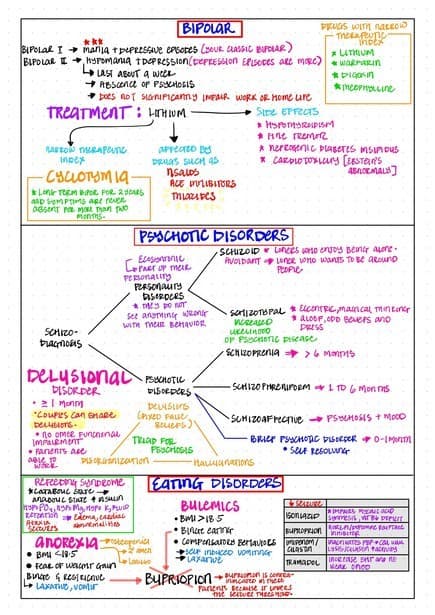 BIPOLAR
BIPOLAR I → MANIA + DEPRESSIVE EPISODES (YOUR CLASSIC BIPOLAR)
BIPOLAR II → HYPOMANIA + DEPRESSION (DEPRESSION EPISODES ARE MORE)
LAST ABOUT A WEEK
ABSENCE OF PSYCHOSIS
DOES NOT SIGNIFICANTLY IMPAIR WORK OR HOME LIFE
DRUGS WITH NARROW
THERAPEUTIC
INDEX
* LITHIUM
* WARFARIN
* DIGOXIN
* THEOPHYLLINE
TREATMENT: LITHIUM
NARROW THERAPEUTIC
INDEX
AFFECTED BY
DRUGS SUCH AS
NSAIDS
ACE INHIBITORS
THIAZIDES
SIDE EFFECTS
* HYPOTHYROIDISM
* FINE TREMOR
* NEPROGENIC DIABETES INSIPIDUS
* CARDIOTOXICITY [EBSTEIN'S
ABNORMALY]
CYCLOTYMIA
* LONG TERM BIPOR FOR 2 YEARS
AND SYMPTOMS ARE NEVER
ABSENT FOR MORE THAN TWO
MONTHS.
PSYCHOTIC DISORDERS
EGOSYNTONIC
* PART OF THEIR
PERSONALITY
PERSONALITY
DISORDERS
* THEY DO NOT
SEE ANYTHING WRONG
WITH THEIR BEHAVIOR
SCHIZOID → LONERS WHO ENJOY BEING ALONE.
AVOIDANT → LONER WHO WANTS TO BE AROUND
PEOPLE.
SCHIZOTYPAL
INCREASED
LIKELIHOOD
OF PSYCHOTIC DISEASE
* ECCENTRIC, MAGICAL THINKING
* ALOOF, ODD BELIEFS AND
DRESS
SCHIZO-
DIAGNOSIS
SCHIZOPRENIA → > 6 MONTHS
PSYCHOTIC
DISORDERS
SCHIZOPHRENIFORM → 1 TO 6 MONTHS
SCHIZOAFFECTIVE → PSYCHOSIS + MOOD
BRIEF PSYCHOTIC DISORDER → 0-1 MONTH
* SELF RESOLVING
DELUSIONAL
DISORDER
• ≥ 1 MONTH
• COUPLES CAN SHARE
DELUSIONS.
• NO OTHER FUNCTIONAL
IMPAIRMENT
• PATIENTS ARE
ABLE TO
WORK
DELUSIONS
(FIXED FALSE
BELIEFS)
TRIAD FOR
PSYCHOSIS
DISORGANIZATION
HALLUCINATIONS
EATING DISORDERS
REFEEDING SYNDROME
* CATABOLIC STATE →
ANABOLIC STATE + INSULIN
HYPO PO4, HYPO MG, HYPO K, FLUID
RETENTION → EDEMA, CARDIAC
ATAXIA ABNORMALITIES
SEIZURES
ANOREXIA
• BMI < 18.5
• FEAR OF WEIGHT GAIN
BINGE & RESTRICTIVE
LAXATIVE, VOMIT
OSTEOPENIA
LANUGO
BULEMICS
• BMI > 18.5
• BINGE EATING
• COMPENSATORY BEHAVIORS
SELF INDUCED VOMITING
LAXATIVE
BUPROPION
BUPROPION IS CONTRA-
INDICATED IN THESE
PATIENTS BECAUSE IT LOWERS
THE SEIZURE THRESHOLD.
SEIZURE
ISONIAZID
BUPROPRION
IMIPENEM/
CILASTIN
TRAMADOL